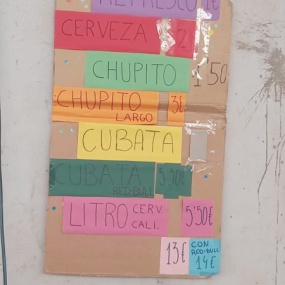 REFRESCO 1€
CERVEZA 2
CHUPITO 1'50
CHUPITO LARGO 3€
CUBATA
CUBATA RED-BULL 5'50€
LITRO CERV. CALI. 5'50€
13€ CON RED-BULL 14€